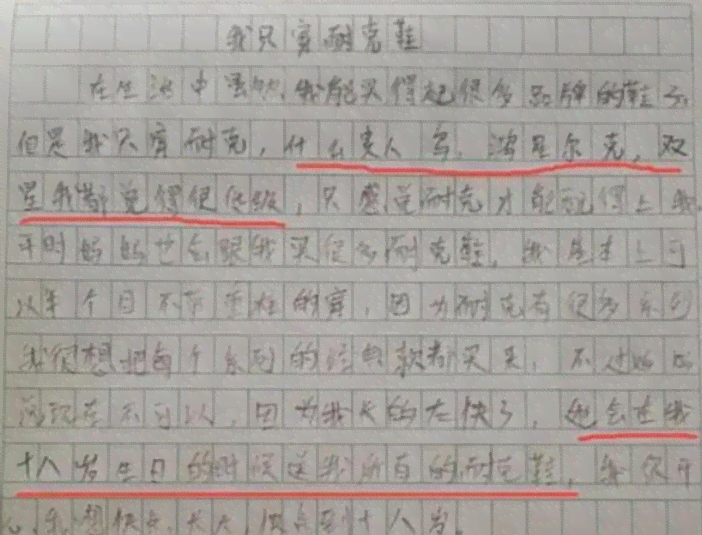 我只穿耐克鞋
在生活中虽然，我能买得起很多品牌的鞋子，
但是我只穿耐克，什么贵人鸟，鸿星尔克，双
星我都觉得很低级，只感觉耐克才能配得上我，
平时妈妈也会跟我买很多耐克鞋，我基本上可
以半个月不带重样的穿，因为耐克有很多系列
我很想把每个系列的经典款都买来，不过妈妈
说现在不可以，因为我长的太快了，她会在我
十八岁生日的时候送我所有的耐克鞋，我很开
心，我想快点长大，快点到十八岁。